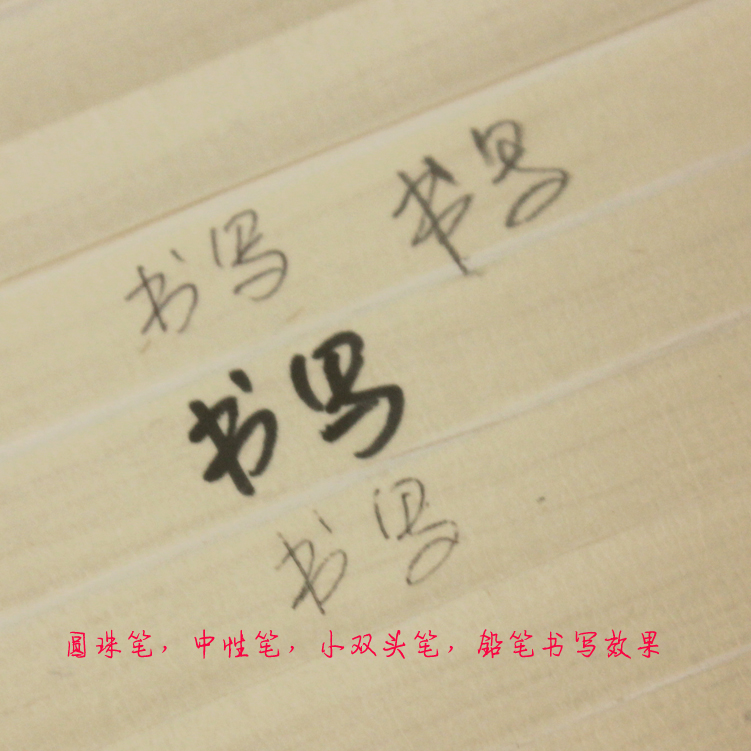 书写 书写
书写
书写
圆珠笔，中性笔，小双头笔，铅笔书写效果